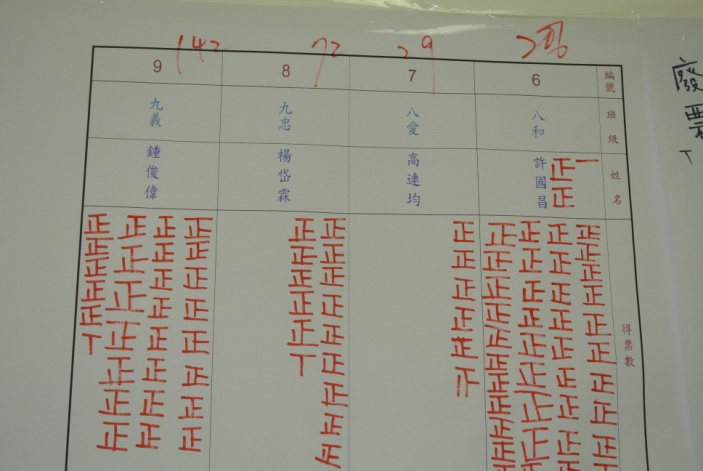 142 72 29
9 8 7 6 編號
九義 九忠 八愛 八和 班級
鍾俊偉 楊岱霖 高連均 許國昌 姓名
正正一
得票數
正正正正正正正正正
正正正正正正正正正
正正正正正正正正
正正正正正正正正正正正
正正正正正止
正正正正正正正正正
正正正正正丅
正正正正正正正正
正正正正正正正正
正正正正正正正
正正正正正丅
廢票丅